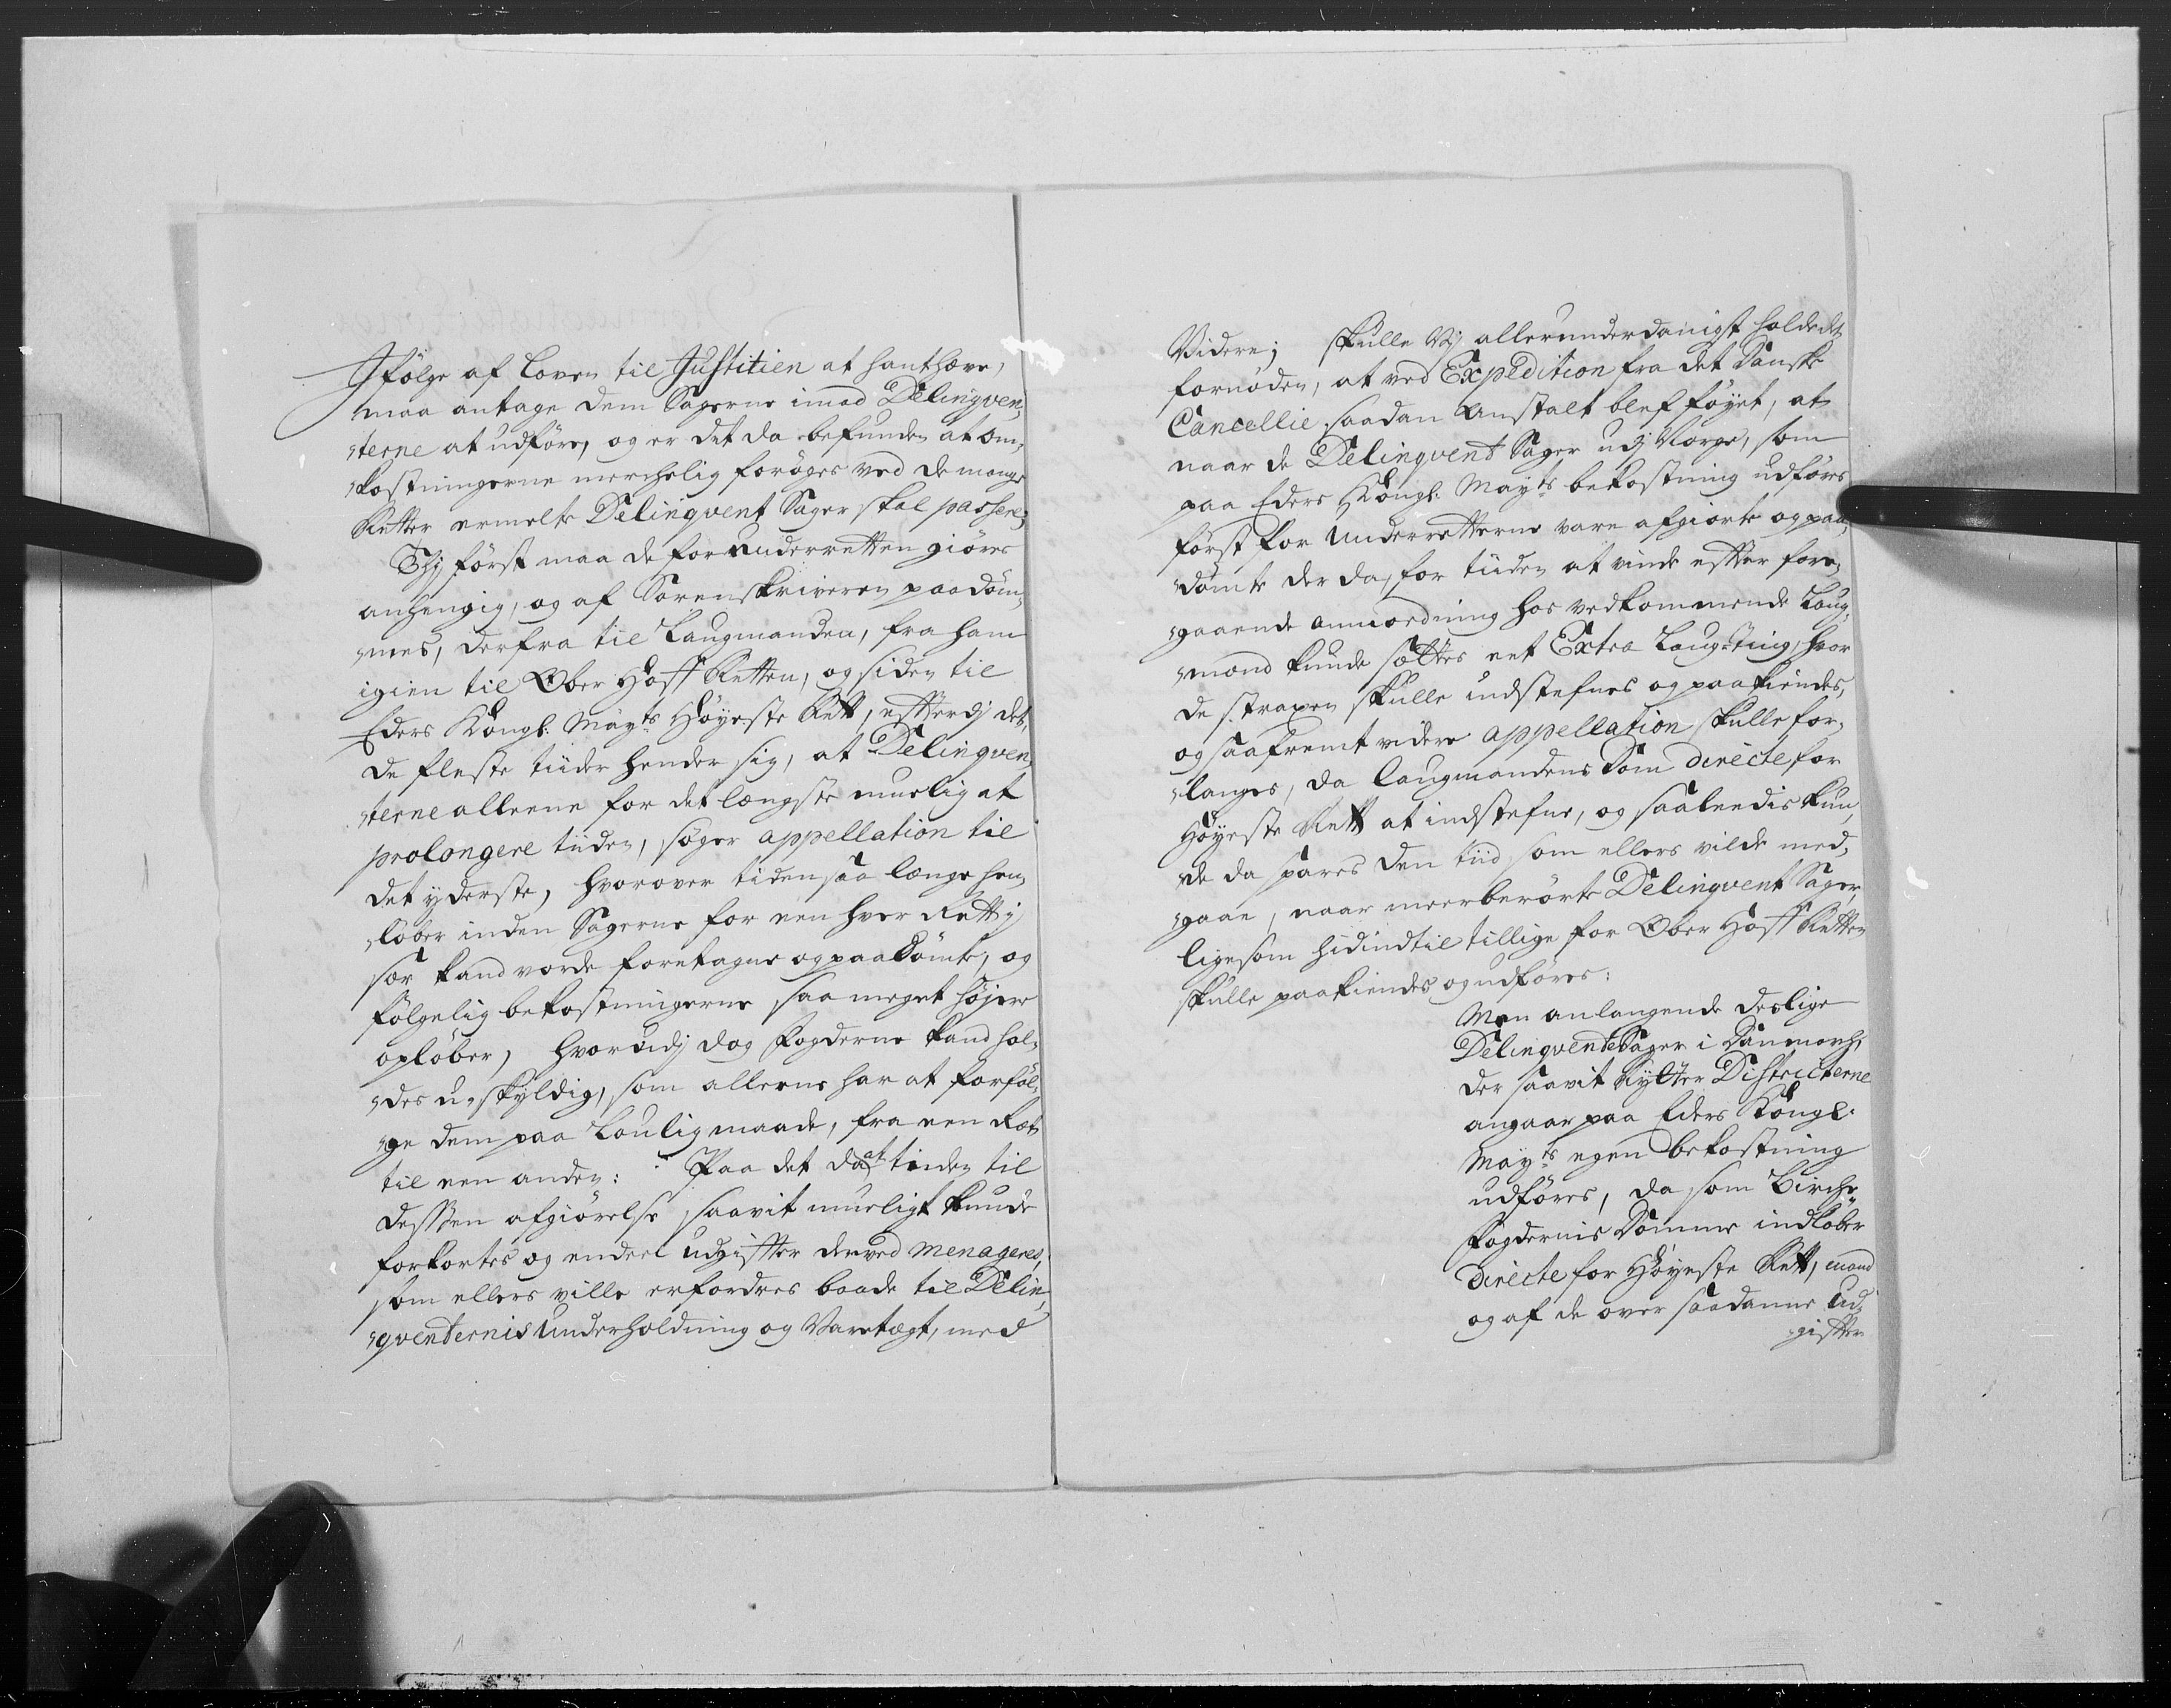 Jfölge af Loven til Justitien at hanthæve,
maa antage dem Sagerne imod Delinqven,
„terne at udföre, og er det da befunden at om,
„kostningerne merchelig forøges ved de mange
Retter ermelte Delinqvent Sager skal passere;
Thj først maa de for Underretten giøres
anhengig, og af Sorenskriveren paadöm,
„mes, derfra til Laugmanden, fra ham
igien til Ober Hoff Retten, og siden til
Eders Kongl: Mayts Høyeste Rett, effterdj det,
de fleste tiider hender sig, at Delinqven,
„terne alleene for det længste muelig at
prolongere tiiden, søger appellation til
det yderste, hvorover tiden saa længe hen,
„løber inden Sagerne for een hver Rett j
sær kand vorde foretagne og paadömte, og
fölgelig bekostningerne saa meget höjere
opløber, hvorudj dog fogderne kand hol,
„des u-skyldig, som alleene har at forföl,
„ge dem paa Loulig maade, fra een Ræt
til een anden: Paa det da at tiiden til
dessen afgiörelse saavit mueligt kunde
forkortes og endeel udgiffter derved menageres,
som ellers ville erfordres baade til Delin,
„qventernis Underholdning og Varetægt, med
Videre; skulle Vj allerunderdanigst holde det
fornöden, at ved Expedition fra det Danske
Cancellie saadan Anstalt blef föyet, at
naar de Delinqvent Sager udj Norge, som
paa Eders Kongl: Mayts bekostning udföres
først for Underretterne vare afgiorte og paa,
„dömte der da, for tiiden at vinde effter fore,
„gaaende anmordning hos vedkommende Laug,
„mand kunde sættes eet Extra Laugting, hvor
de straxen skulle indstefnes og paakiendes,
og saafremt videre appellation skulle for,
„langes, da Laugmandens Dom directe for
Høyeste Rett at indstefne, og saaleedis kun,
„de da spares den tiid som ellers vilde med,
„gaae, naar meerberørte Delinqvent Sager,
ligesom hidindtil tillige for Ober Hoff Retten
skulle paakiendes og udföres:
Men anlangende deslige
Delinqvent Sager i Danmarch,
der saavit Rytter Districterne
angaar paa Eders Kongl:
Mayts egen bekostning
udföres, da som Birche
fogdernis Domme indløber
directe for Høyeste Rett, mand
og af de over saadanne Ud,
„giffter